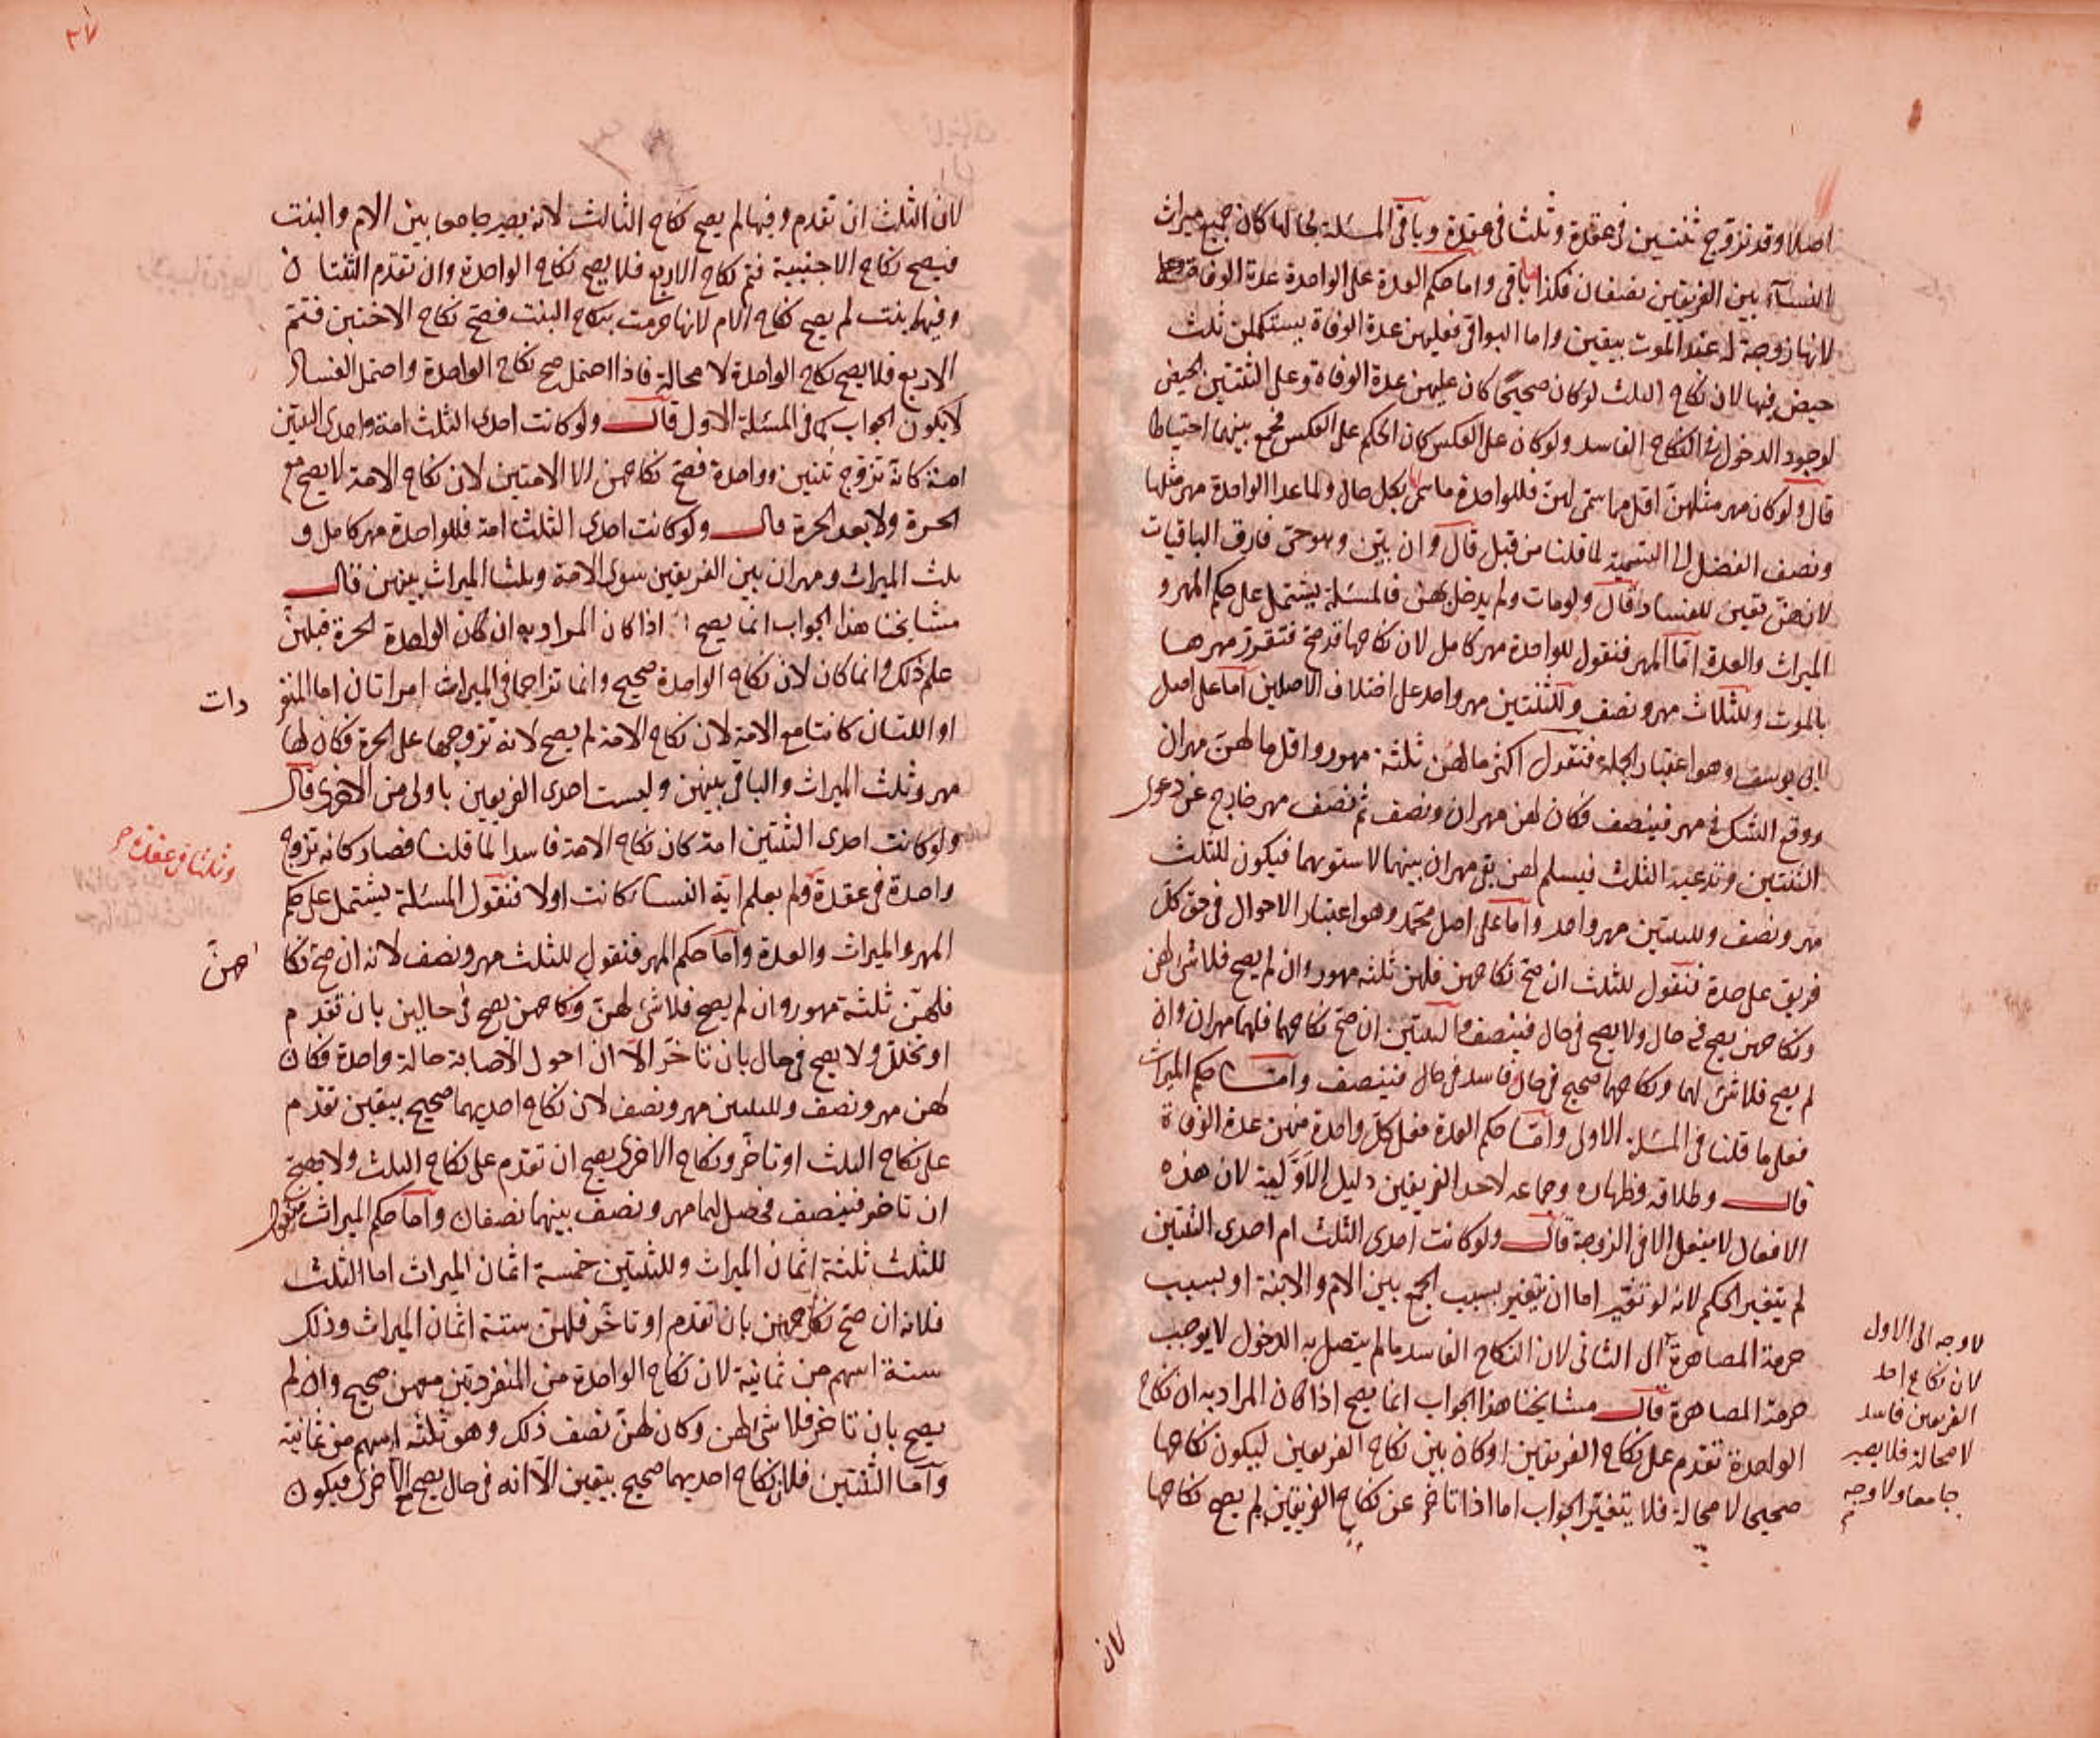 اصلا وقد تزوج ثنتين في عقدة وثلثا في عقدة وباقي المسئلة بحالها كان جميع ميراث
النسآء بين الفريقين نصفان فكذا ما بقي واما حكم العدة على الواحدة عدة الوفاة
لانها زوجة له عند الموت بيقين واما البواقي فعليهن عدة الوفاة يستكملن ثلث
حيض فيها لان نكاح الثلث لو كان صحيحًا كان عليهن عدة الوفاة وعلى الثنتين الحيض
لوجود الدخول في النكاح الفاسد ولو كان على العكس كان الحكم على العكس فجمع بينهما احتياطا
قال ولو كان مهر مثلهن اقل مما سمى لهن فللواحدة ما سمى بكل حال ولما عدا الواحدة مهر مثلها
ونصف الفضل الى التسمية لما قلنا من قبل قال وان بيّن وهو حي فارق الباقيات
لانهن تعين للفساد قال ولو مات ولم يدخل بهن فالمسئلة يشتمل على حكم المهر و
الميراث والعدة امّا المهر فنقول للواحدة مهر كامل لان نكاحها قد صح فتقرر مهرها
بالموت وللثلاث مهر ونصف وللثنتين مهر واحد على اختلاف الاصلين اما على اصل
ابي يوسف وهو اعتبار الجملة فنقول اكثر ما لهن ثلثة مهور واقل ما لهن مهران
ووقع الشك في مهر فينصف فكان لهن مهران ونصف ثم نصف مهر خارج عن دعوى
الثنتين وتدعيه الثلث فيسلم لهن بقي مهران بينهما لاستوىهما فيكون للثلث
مهر ونصف وللثنتين مهر واحد واما على اصل محمد وهو اعتبار الاحوال في حق كل
فريق على حدة فنقول للثلث ان صح نكاحهن فلهن ثلثه مهور وان لم يصح فلا شئ لهن
ونكاحهن يصح في حال ولا يصح في حال فينصف واما الثنتين ان صح نكاحهما فلهما مهران وان
لم يصح فلا شئ لهما ونكاحهما صحيح في حال فاسد في حال فينصف وامّا حكم الميراث
فعلى ما قلنا في المسئلة الاولى وامّا حكم العدة فعلى كل واحدة منهن عدة الوفاة
قال وطلاقه وظهاره وجماعه لاحد الفريقين دليل الاوّليّة لان هذه
الافعال لا يفعل الا في الزوجة قال ولو كانت احدى الثلث ام احدى الثنتين
لم يتغير الحكم لانه لو تغير اما ان يتغير بسبب الجمع بين الام والابنة او بسبب
حرمة المصاهرة الى الثاني لان النكاح الفاسد ما لم يتصل به الدخول لا يوجب
حرمة المصاهرة قال مشايخنا هذا الجواب انما يصح اذا كان المراد به ان نكاح
الواحدة تقدم على نكاح الفريقين او كان بين نكاح الفريقين ليكون نكاحها
صحيحا لا محالة فلا يتغير الجواب اما اذا تاخر عن نكاح الفريقين لم يصح نكاحها
لا وجه الى الاول
لان نكاح احد
الفريقين فاسد
لا محالة فلا يصير
جامعا ولا وجه
لان
٣٧
لان الثلث ان تقدم وفيها لم يصح نكاح الثالث لانه يصير جامعا بين الام والبنت
فيصح نكاح الاجنبية فتم نكاح الاربع فلا يصح نكاح الواحدة وان تقدم الثنتان
وفيها بنت لم يصح نكاح الام لانها حرمت بنكاح البنت فصح نكاح الاختين فتتم
الاربع فلا يصح نكاح الواحدة لا محالة فاذا احتمل صح نكاح الواحدة واحتمل الفساد
لا يكون الجواب كما في المسئلة الاولى قال ولو كانت احدى الثلث امة واحدى الثنتين
امة كانه تزوج ثنتين وواحدة فصح نكاحهن الا الامتين لان نكاح الامة لا يصح مع
الحرة ولا بعد الحرة قال ولو كانت احدى الثلث امة فللواحدة مهر كامل و
ثلث الميراث ومهران بين الفريقين سوى الامة وثلثا الميراث بينهن قال
مشايخنا هذا الجواب انما يصح اذا كان المراد به ان كان الواحدة الحرة قبلهن
علم ذلك وانما كان لان نكاح الواحدة صحيح وانما تزاحما في الميراث امراتان اما المنفر
دات
او اللتان كانتا مع الامة لان نكاح الامة لم يصح لانه تزوجها على الحرة فكان لها
مهر وثلث الميراث والباقي بينهن وليست احدى الفريقين باولى من الاخرى قال
ولو كانت احدى الثنتين امة كان نكاح الامة فاسدا لما قلنا فصار كانه تزوج
وثلثا في عقدة صح
واحدة في عقدة ولم يعلم اية النساء كانت اولا فنقول المسئلة يشتمل على حكم
المهر والميراث والعدة واما حكم المهر فنقول للثلث مهر ونصف لانه ان صح نكا
حهن
فلهن ثلثة مهور وان لم يصح فلا شئ لهن ونكاحهن يصح في حالين بان تقدم
او تخلل ولا يصح في حال بان تاخر الا ان احول الاصابة حالة واحدة فكان
لهن مهر ونصف وللثنتين مهر ونصف لان نكاح احديهما صحيح بيقين تقدم
على نكاح الثلث او تاخر ونكاح الاخرى يصح ان تقدم على نكاح الثلث ولا يصح
ان تاخر فينصف فحصل لهما مهر ونصف بينهما نصفان واما حكم الميراث فنقول
للثلث ثلثة اثمان الميراث وللثنتين خمسة اثمان الميراث اما الثلث
فلانه ان صح نكاحهن بان تقدم او تاخر فلهن ستة اثمان الميراث وذلك
ستة اسهم من ثمانية لان نكاح الواحدة من المنفردتين معهن صحيح وان لم
يصح بان تاخر فلا شئ لهن وكان لهن نصف ذلك وهو ثلثه اسهم من ثمانية
وامّا الثنتين فلان نكاح احديهما صحيح بيقين الا انه في حال يصح مع الاخرى فيكون